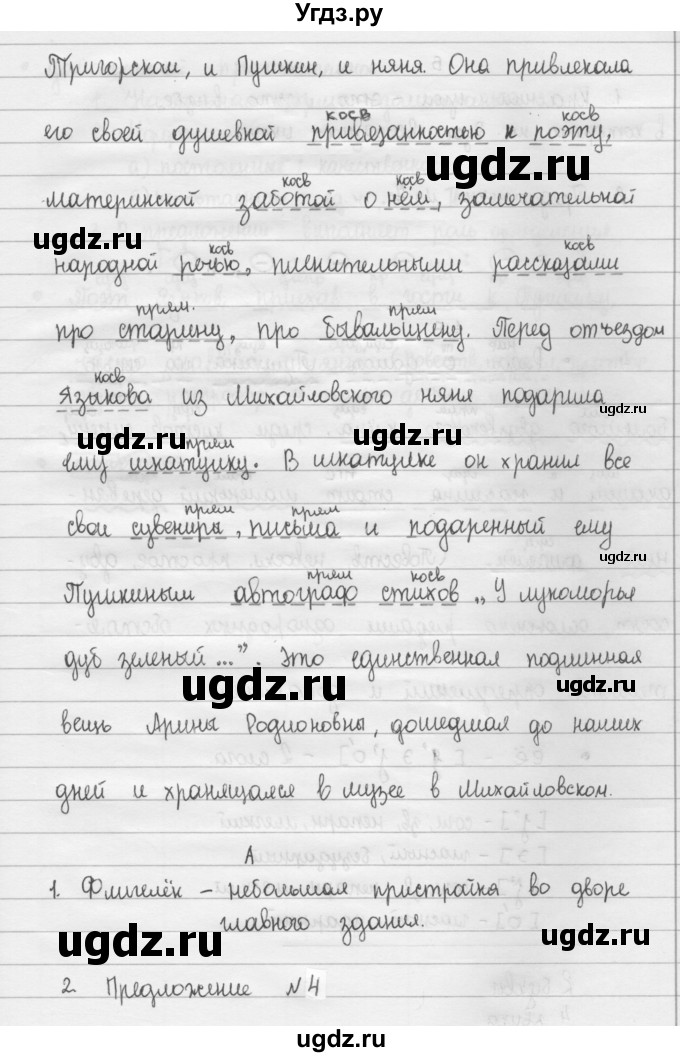 Угдз.ру
Тригорском, и Пушкин, и няня. Она привлекала
косв косв
его своей душевной привязанностью к поэту,
ugdz.ru ugdz.ru
косв косв
материнской заботой о нём, замечательной
ugdz.ru косв косв
народной речью, пленительными рассказами
ugdz.ru ugdz.ru
прям. прям
про старину, про бывальщину. Перед отъездом
косв ugdz.ru
Языкова из Михайловского няня подарила
ugdz.ru прям ugdz.ru
ему шкатулку. В шкатулке он хранил все
прям прям
свои сувениры, письма и подаренный ему
ugdz.ru
прям косв
Пушкиным автограф стихов „У лукоморья
дуб зеленый...”. Это единственная подлинная
ugdz.ru ugdz.ru
вещь Арины Родионовны, дошедшая до наших
дней и хранящаяся в музее в Михайловском.
А
ugdz.ru
1. Флигелёк – небольшая пристройка во дворе
главного здания.
ugdz.ru ugdz.ru
2. Предложение №4
ugdz.ru